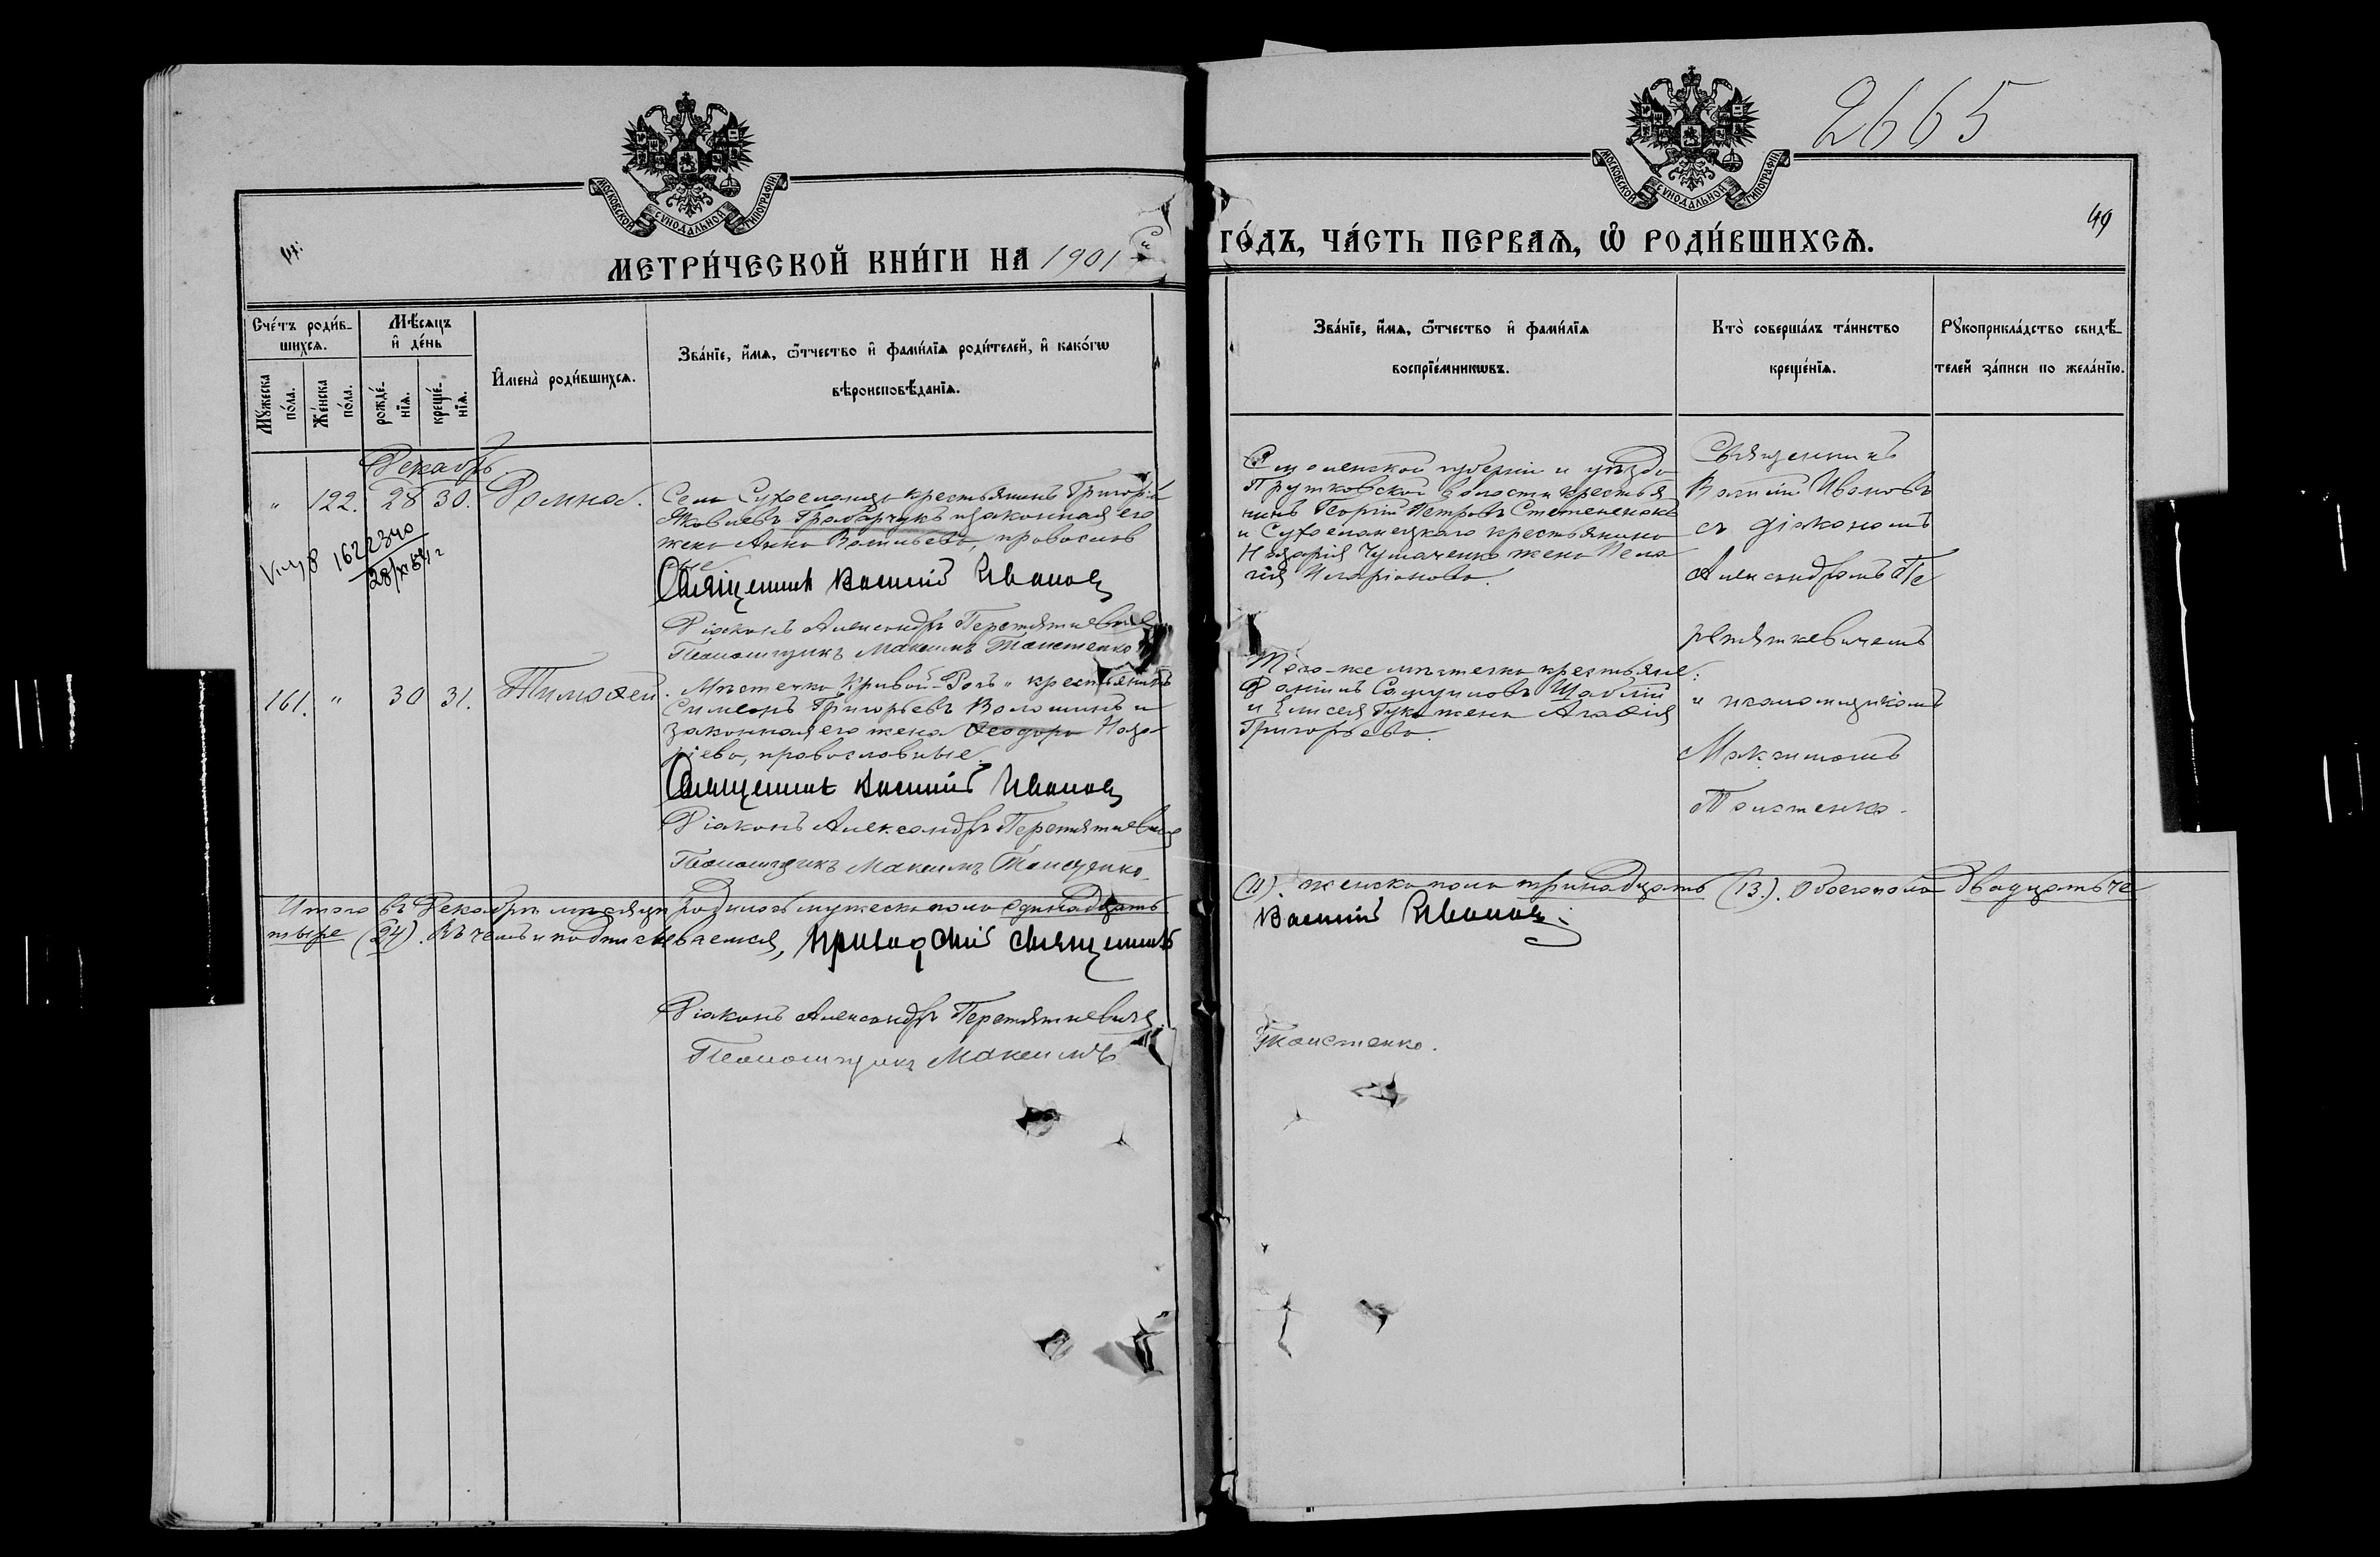 2665
МОСКОВСКОЙ СУНОДАЛЬНОЙ ТИПОГРАФІИ
МОСКОВСКОЙ СУНОДАЛЬНОЙ ТИПОГРАФІИ
49
МЕТРИ́ЧЕСКОЙ КНИ́ГИ НА 1901
ГО́ДЪ, ЧА́СТЬ ПЕРВАѦ, Ѡ҆ РОДИ́ВШИХСѦ.
Сче́тъ роди́в-
шихсѧ.
Мѣ́сѧцъ
и҆ де́нь
Мꙋ́жеска
по́ла.
Же́нска
по́ла.
рожде́-
нїѧ.
креще́-
нїѧ.
И҆мена̀ роди́вшихсѧ.
Зва́нїе, и҆́мѧ, ѻ҆́тчество и҆ фами́лїѧ роди́телей, и҆ како́гѡ
вѣроисповѣ́данїѧ.
Зва́нїе, и҆́мѧ, ѻ҆́тчество и҆ фами́лїѧ
воспрїе́мникѡвъ.
Кто̀ соверша́лъ та́инство
креще́нїѧ.
Рꙋкоприкла́дство свидѣ́-
телей за́писи по жела́нїю.
Декабрь.
" 122. 28 30. Домна.
Села Сухоеланца крестьянинъ Григорій
Яковлевъ Грабарчукъ и законная его
жена Анна Васильева, православ
ные
Священникъ Василій Ивановъ
Діаконъ Александръ Перетяткевичъ
Псаломщикъ Максимъ Толстенко
162 2340
28/XI 54 г
Смоленской губерніи и уѣзда
Прутковской волости крестья
нинъ Георгій Петровъ Степененокъ
и Сухоеланецкаго крестьянина
Назарія Чумаченко жена Пела
гія Иларіонова.
Священникъ
Василій Ивановъ
съ діакономъ
Александромъ Пе
ретяткевичемъ
и псаломщикомъ
Максимомъ
Толстенко.
161. " 30 31. Тимоѳей.
Мѣстечка Кривой-Рогъ крестьянинъ
Симеонъ Григорьевъ Волошинъ и
законная его жена Ѳеодора Наза
ріева, православные.
Священникъ Василій Ивановъ
Діаконъ Александръ Перетяткевичъ
Псаломщикъ Максимъ Толстенко.
Того-же мѣстечка крестьяне:
Даніилъ Самуиловъ Шаблій
и Елисея Гука жена Агаѳія
Григорьева.
Итого въ Декабрѣ мѣсяцѣ родилось мужеска пола одинадцать (11). женска пола тринадцать (13.). Обоего пола двадцать че
тыре (24). Въ чемъ и подписываемся, Приходскій священникъ Василій Ивановъ.
Діаконъ Александръ Перетяткевичъ
Псаломщикъ Максимъ Толстенко.